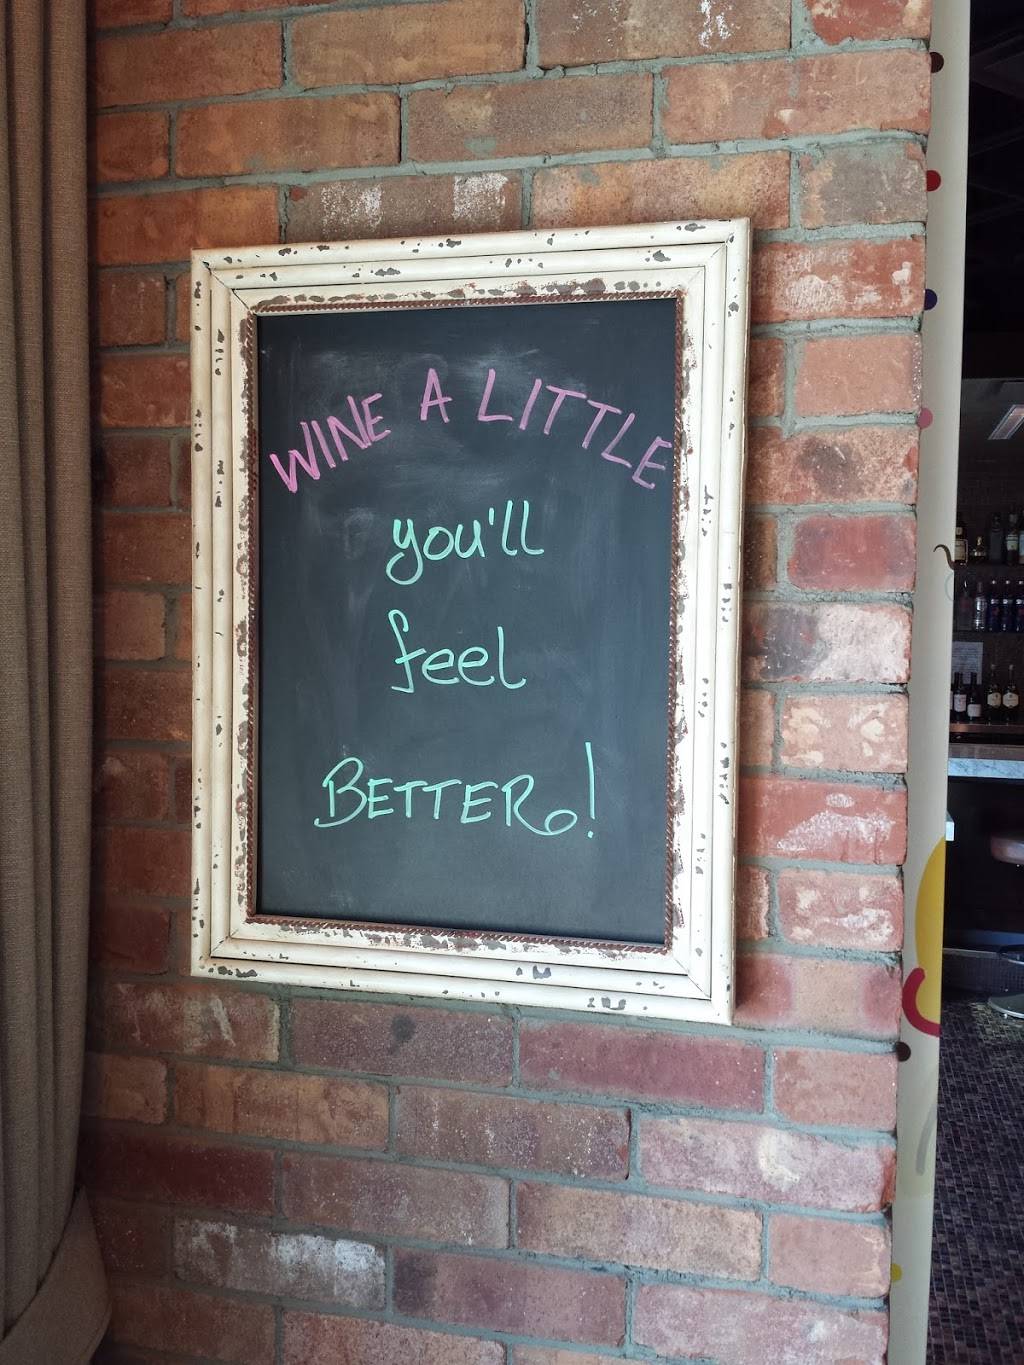 WINE A LITTLE
you'll
feel
BETTER!